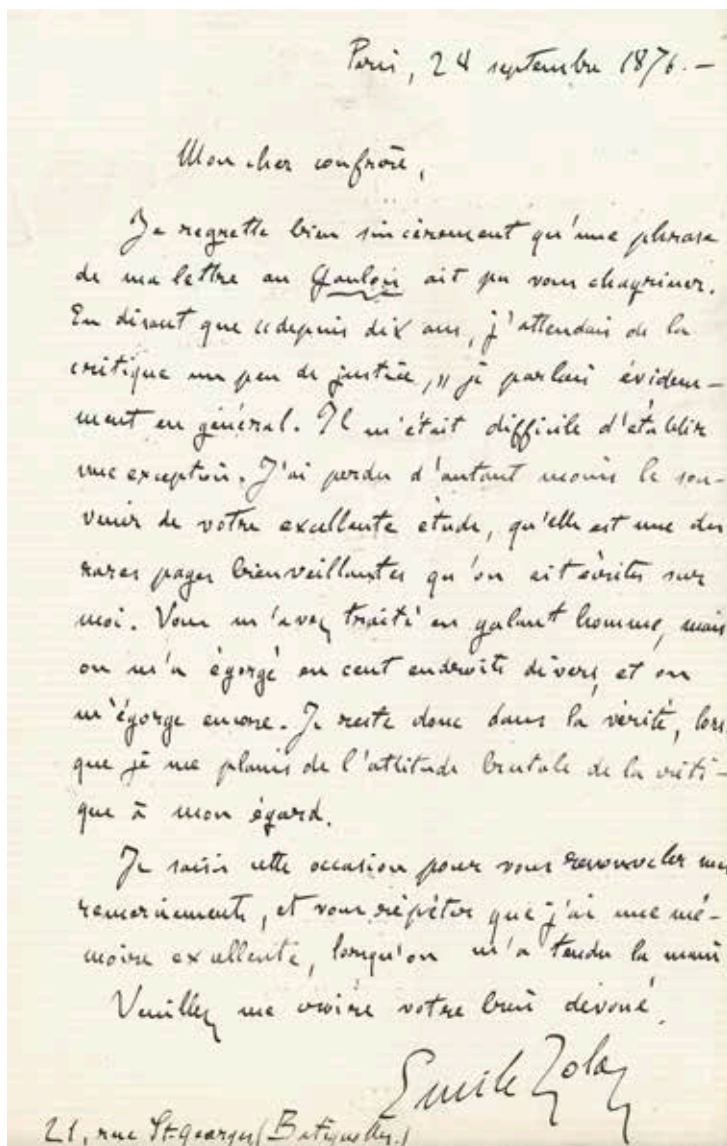 Paris, 24 septembre 1876. —
Mon cher confrère,
Je regrette bien sincèrement qu'une phrase
de ma lettre au Gaulois ait pu vous chagriner.
En disant que «depuis dix ans, j'attendais de la
critique un peu de justice,» je parlais évidem-
ment en général. Il m'était difficile d'établir
une exception. J'ai perdu d'autant moins le sou-
venir de votre excellente étude, qu'elle est une des
rares pages bienveillantes qu'on ait écrites sur
moi. Vous m'avez traité en galant homme, mais
on m'a égorgé en cent endroits divers, et on
m'égorge encore. Je reste donc dans la vérité, lors
que je me plains de l'attitude brutale de la criti-
que à mon égard.
Je saisis cette occasion pour vous renouveler mes
remerciements, et vous répéter que j'ai une mé-
moire excellente, lorsqu'on m'a tendu la main
Veuillez me croire votre bien dévoué.
Emile Zola
21, rue St-Georges (Batignolles.)